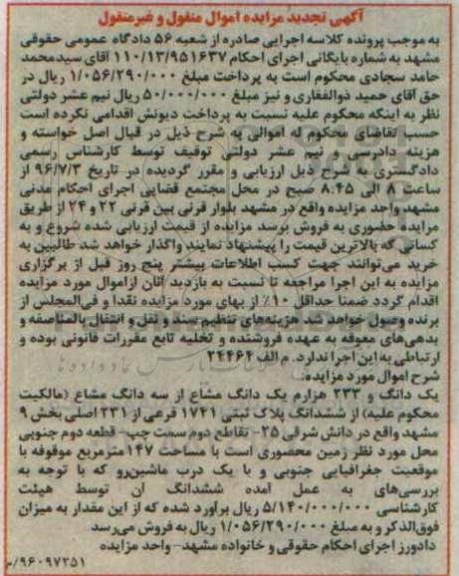 آگهی تجدید مزایده اموال منقول و غیرمنقول
به موجب پرونده کلاسه اجرایی صادره از شعبه ۵۶ دادگاه عمومی حقوقی
مشهد به شماره بایگانی اجرای احکام ۱۱۰/۱۳/۹۵۱۶۳۷ آقای سیدمحمد
حامد سجادی محکوم است به پرداخت مبلغ ۱/۰۵۶/۲۹۰/۰۰۰ ریال در
حق آقای حمید ذوالفغاری و نیز مبلغ ۵۰/۰۰۰/۰۰۰ ریال نیم عشر دولتی
نظر به اینکه محکوم علیه نسبت به پرداخت دیونش اقدامی نکرده است
حسب تقاضای محکوم له اموالی به شرح ذیل در قبال اصل خواسته و
هزینه دادرسی و نیم عشر دولتی توقیف توسط کارشناس رسمی
دادگستری به شرح ذیل ارزیابی و مقرر گردیده در تاریخ ۹۶/۷/۳ از
ساعت ۸ الی ۸:۴۵ صبح در محل مجتمع قضایی اجرای احکام مدنی
مشهد واحد مزایده واقع در مشهد بلوار قرنی بین قرنی ۲۲ و ۲۴ از طریق
مزایده حضوری به فروش برسد مزایده از قیمت ارزیابی شده شروع و به
کسانی که بالاترین قیمت را پیشنهاد نمایند واگذار خواهد شد طالبین به
خرید می‌توانند جهت کسب اطلاعات بیشتر پنج روز قبل از برگزاری
مزایده به این اجرا مراجعه تا نسبت به بازدید آنان ازاموال مورد مزایده
اقدام گردد ضمنا حداقل ۱۰٪ از بهای مورد مزایده نقدا و فی‌المجلس از
برنده وصول خواهد شد هزینه‌های تنظیم سند و نقل و انتقال بالمناصفه و
بدهی‌های معوقه به عهده فروشنده و تخلیه تابع مقررات قانونی بوده و
ارتباطی به این اجرا ندارد. م الف ۲۴۴۶۴
شرح اموال مورد مزایده:
یک دانگ و ۲۳۳ هزارم یک دانگ مشاع از سه دانگ مشاع (مالکیت
محکوم علیه) از ششدانگ پلاک ثبتی ۱۷۴۱ فرعی از ۲۳۱ اصلی بخش ۹
مشهد واقع در دانش شرقی ۲۵- تقاطع دوم سمت چپ- قطعه دوم جنوبی
محل مورد نظر زمین محصوری است با مساحت ۱۴۷ مترمربع موقوفه با
موقعیت جغرافیایی جنوبی و با یک درب ماشین‌رو که با توجه به
بررسی‌های به عمل آمده ششدانگ آن توسط هیئت
کارشناسی ۵/۱۴۰/۰۰۰/۰۰۰ ریال برآورد شده که از این مقدار به میزان
فوق‌الذکر و به مبلغ ۱/۰۵۶/۲۹۰/۰۰۰ ریال به فروش می‌رسد
دادورز اجرای احکام حقوقی و خانواده مشهد- واحد مزایده
۹۶۰۹۷۳۵۱/م